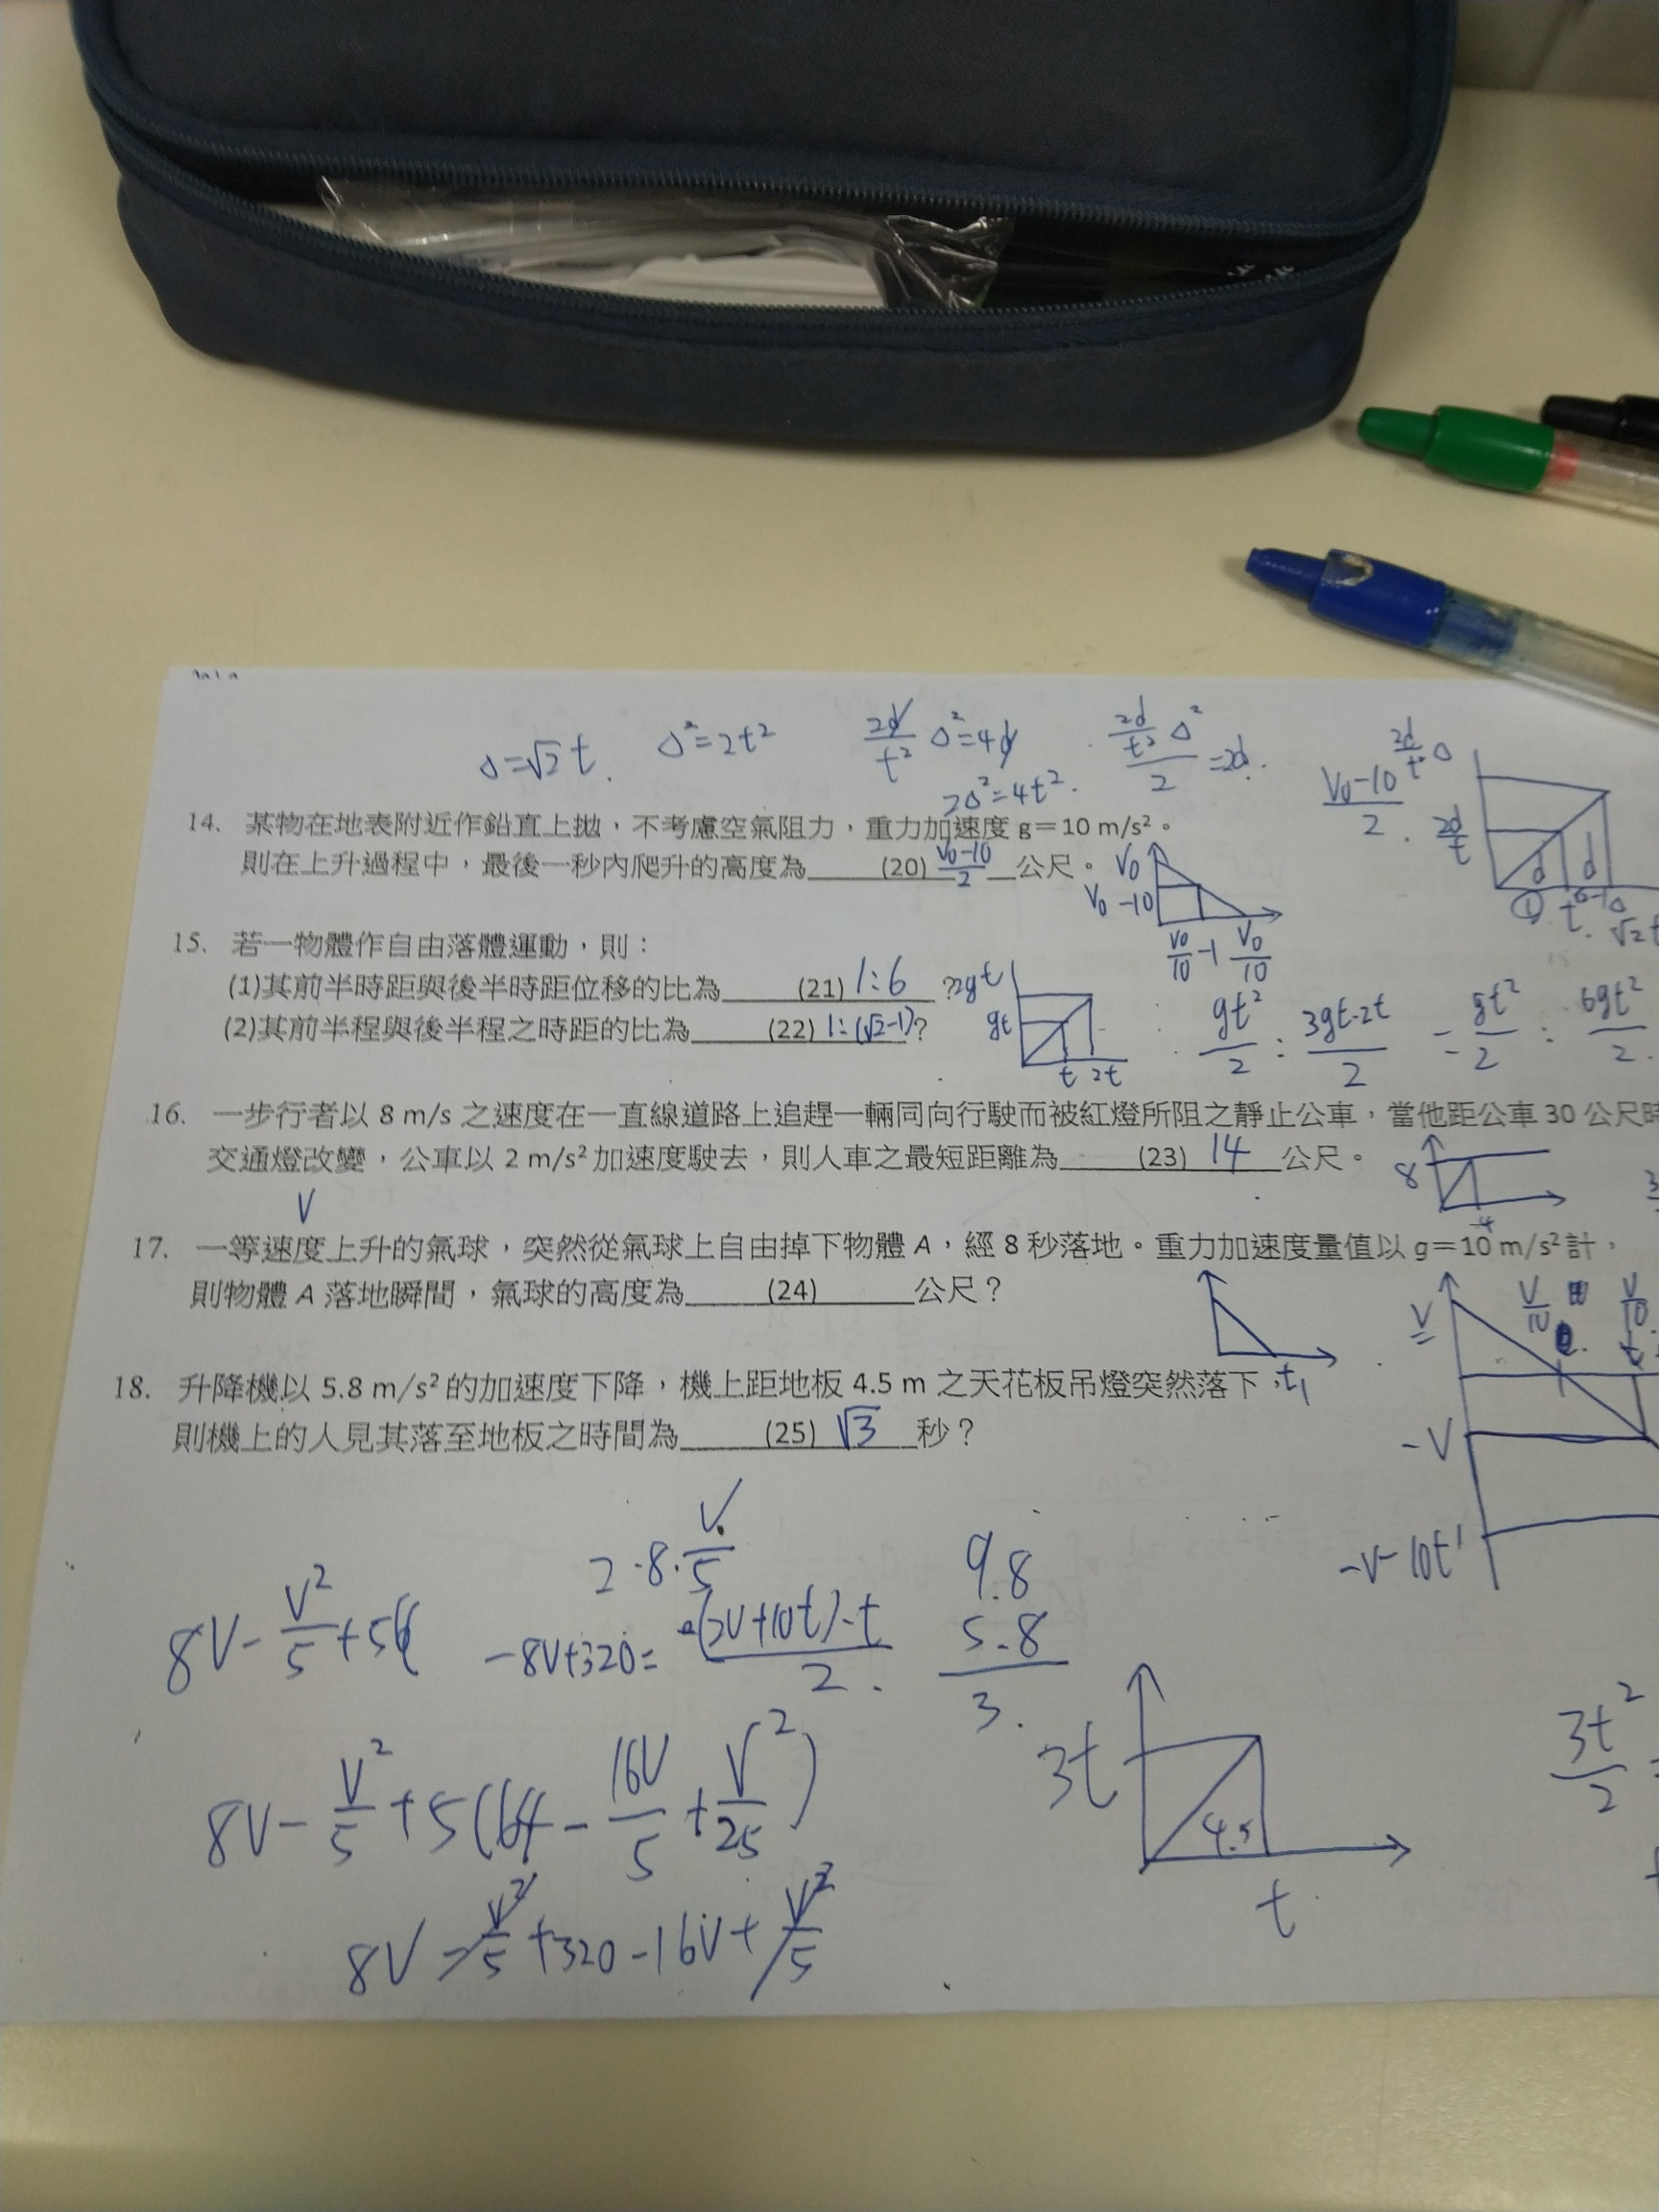 △=√2 t. △²=2t² 2d/t² △²=4d 2d/t² △²/2 =2d. 2d/t △
2△²=4t². V₀-10/2. 2d/t
14. 某物在地表附近作鉛直上拋，不考慮空氣阻力，重力加速度 g＝10 m/s²。
則在上升過程中，最後一秒內爬升的高度為 (20) V₀-10/2 公尺。 V₀
V₀-10 d d
① t √2t
V₀/10 -1 V₀/10
15. 若一物體作自由落體運動，則：
(1)其前半時距與後半時距位移的比為 (21) 1:6 ? 2gt
(2)其前半程與後半程之時距的比為 (22) 1:(√2-1) ? gt
t 2t
gt²/2 : 3gt·2t/2 = gt²/2 : 6gt²/2.
16. 一步行者以 8 m/s 之速度在一直線道路上追趕一輛同向行駛而被紅燈所阻之靜止公車，當他距公車 30 公尺時
交通燈改變，公車以 2 m/s² 加速度駛去，則人車之最短距離為 (23) 14 公尺。 8
4
V
17. 一等速度上升的氣球，突然從氣球上自由掉下物體 A，經 8 秒落地。重力加速度量值以 g＝10 m/s² 計，
則物體 A 落地瞬間，氣球的高度為 (24) 公尺？
V V/10 V/10
18. 升降機以 5.8 m/s² 的加速度下降，機上距地板 4.5 m 之天花板吊燈突然落下， t₁
則機上的人見其落至地板之時間為 (25) √3 秒？ -V
-V-10t'
2·8·V/5
8V-V²/5+5(
-8V+320= (2V+10t)·t/2.
9.8
5.8
3.
8V-V²/5+5(64-16V/5+V²/25)
8V-V²/5+320-16V+V²/5
3t 4.5 t
3t²/2 =